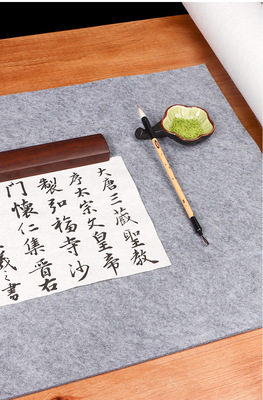 大唐三藏聖教
序太宗文皇帝
製弘福寺沙
門懷仁集晋右
羲之書